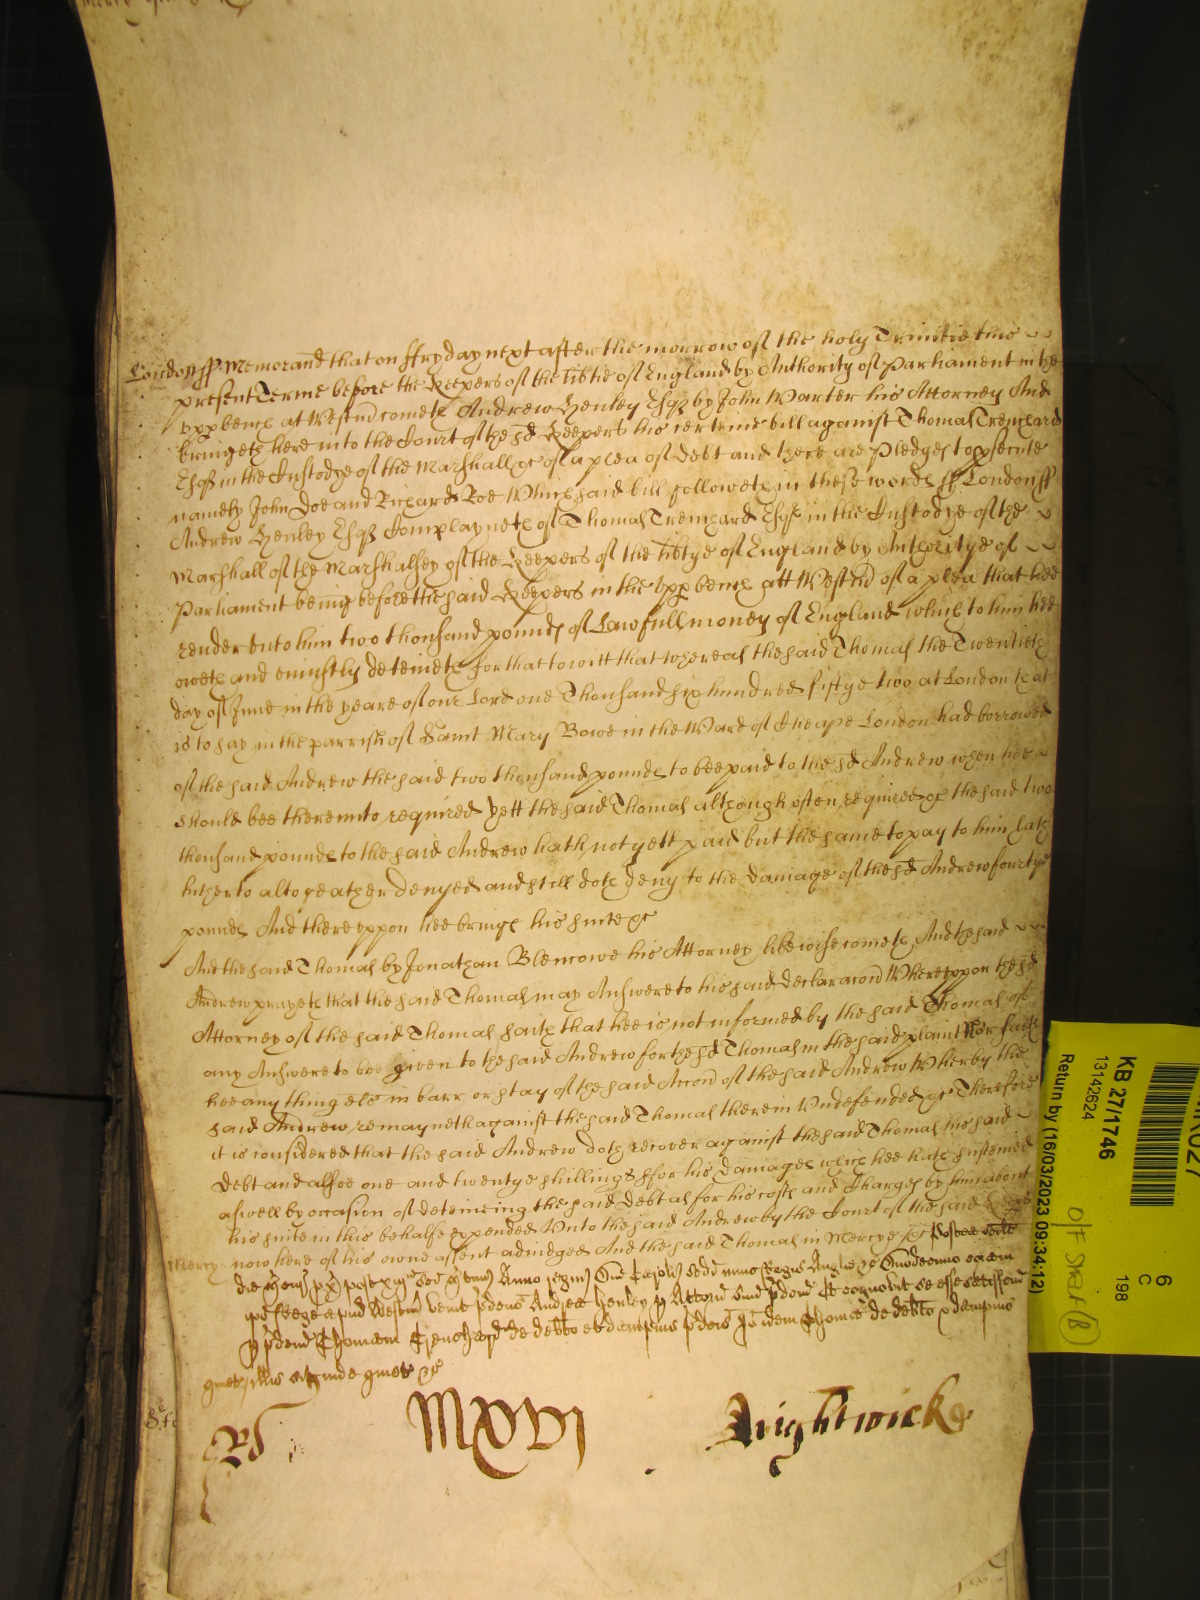 London ss Memorand that on ffryday next after the morrow of the holy Trinitie this
present Terme before the Keepers of the libtie of England by Authority of Parliament in the
vpp bench at Westm cometh Andrew Henley Esq by John Warter his Attorney And
bringeth here into the Court of the sd Keepers his certeine bill against Thomas Trenchard
Esq in the Custodye of the Marshall &c of a plea of debt and there are Pledges to psecute
namely John Doe and Richard Roe Which said bill followeth in these words ss London ss
Andrew Henley Esq Complayneth of Thomas Trenchard Esq in the Custodye of the
Marshall of the Marshalsey of the Keepers of the libtye of England by Authoritye of
Parliament being before the said Keepers in the vpp bench att Westm of a plea that hee
render vnto him two thousand pounds of Lawfull money of England which to him hee
oweth and vniustly deteineth for that to witt that whereas the said Thomas the Twentieth
day of June in the yeare of our Lord one Thousand six hundred fiftye two at London that
is to say in the parrish of Saint Mary Bowe in the Ward of Cheape London had borrowed
of the said Andrew the said two thousand pounds to bee paid to the sd Andrew when hee
should bee therevnto required Yett the said Thomas although often required &c the said two
thousand pounds to the said Andrew hath not yett paid but the same to pay to him hath
hitherto altogeather denyed and still doth deny to the damage of the sd Andrew fourtye
pounds And therevppon hee bringe his suite &c
And the said Thomas by Jonathan Blencowe his Attorney likewise cometh And the said
Andrew prayeth that the said Thomas may Answere to his said declaracion Wherevppon the sd
Attorney of the said Thomas saith that hee is not informed by the said Thomas of
any Answere to bee given to the said Andrew for the sd Thomas in the said plaint Nor saith
hee any thing els in barr or stay of the said Accon of the said Andrew Wherby the
said Andrew remayneth against the said Thomas therein Vndefended &c Therefore
it is considered that the said Andrew doth recover against the said Thomas his said
Debt and alsoe one and twentye shillings ffor his Damages which hee hath susteined
aswell by occasion of deteineing the said debt as for his costs and Charges by him about
his suite in this behalfe expended Vnto the said Andrew by the Court of the said Keepers
Mercy now here of his owne assent adiudged And the said Thomas in Mercye &c Postea scilt
Anno regni Dni Caroli scdi nunc Regis Anglie &c
Rege apud Westm venit pdcus Andreas Henley p Attorn suu pdcm Et cognovit se esse satisfcm
p pdcm Thomam Trenchard de debito et dampnis pdcis Io idem Thomas de debito & dampnis
illis sit inde quiet &c
MXVI
Wightwick
KB 27/1746
13142624
Return by (16/03/2023 09:34:12)
6
C
198
off Shelf (B)